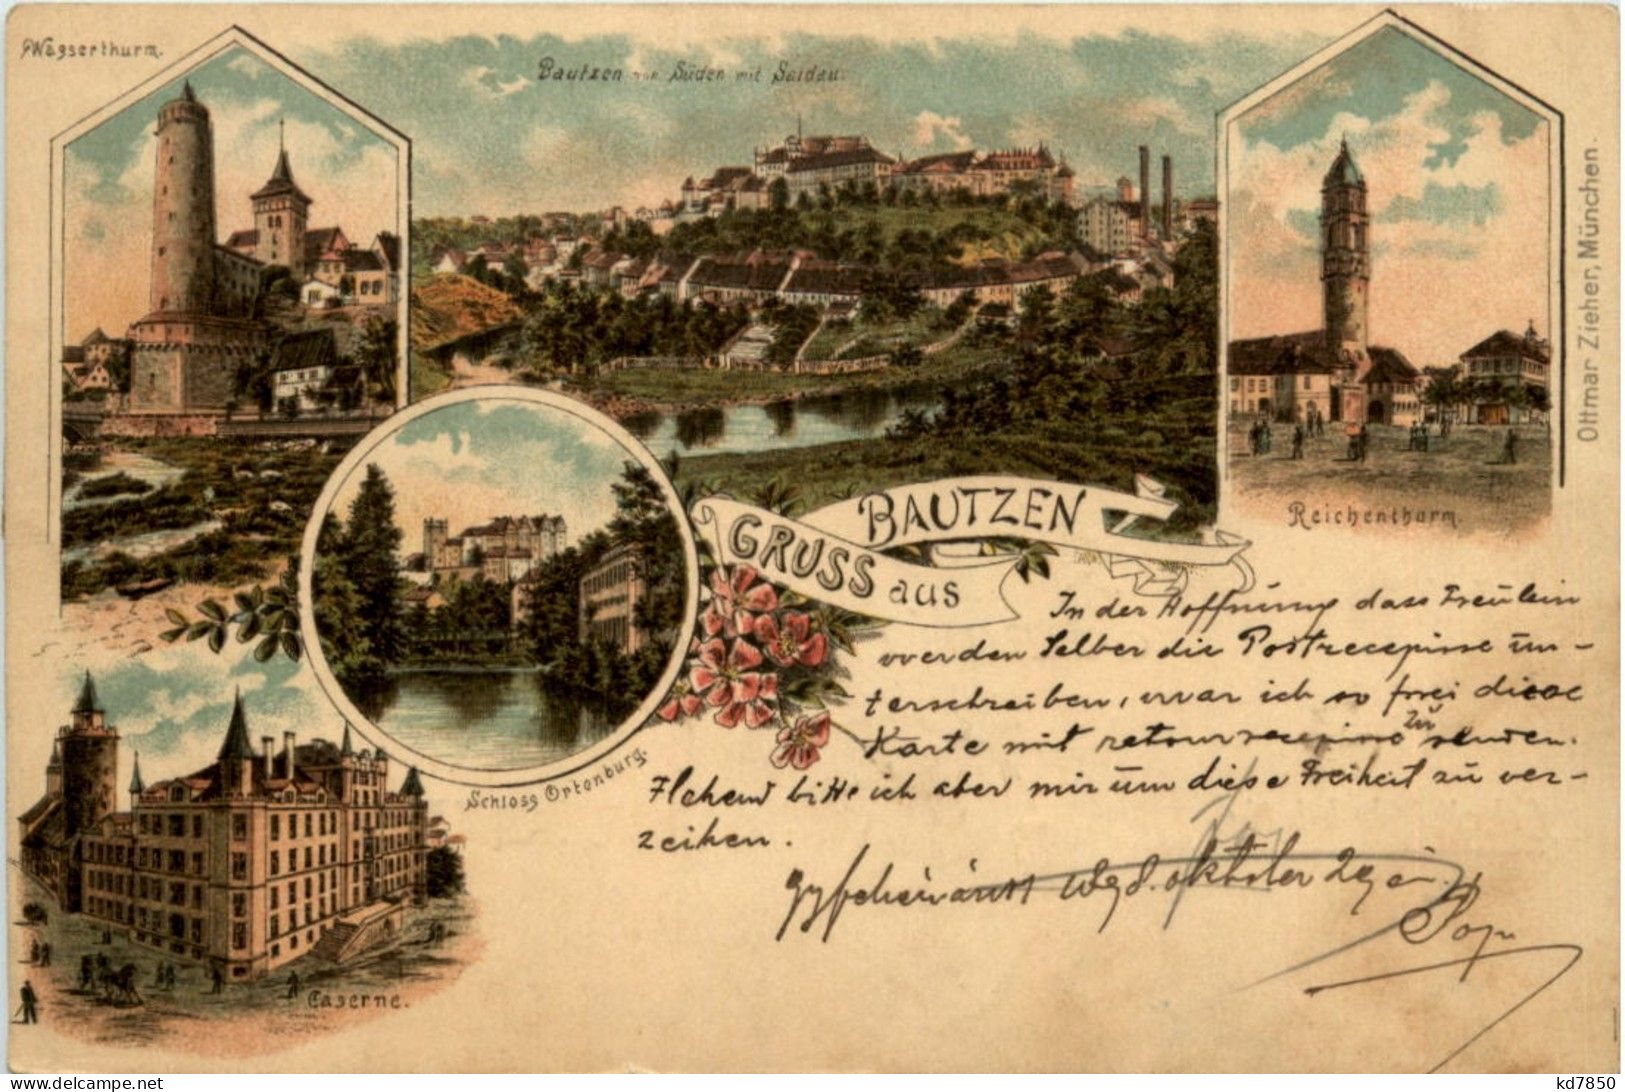 Wasserthurm.
Bautzen von Süden mit Saidau.
Ottmar Zieher, München.
Reichenthurm.
BAUTZEN
GRUSS aus
In der Hoffnung dass Freülein
werden Selber die Postrecepisse ün-
terschreiben, war ich so frei diese
Karte mit retourrecepisse zü senden.
Flehend bitte ich aber mir üm diese Freiheit zü ver-
zeihen.
Schloss Ortenburg.
Caserne.
kd7850